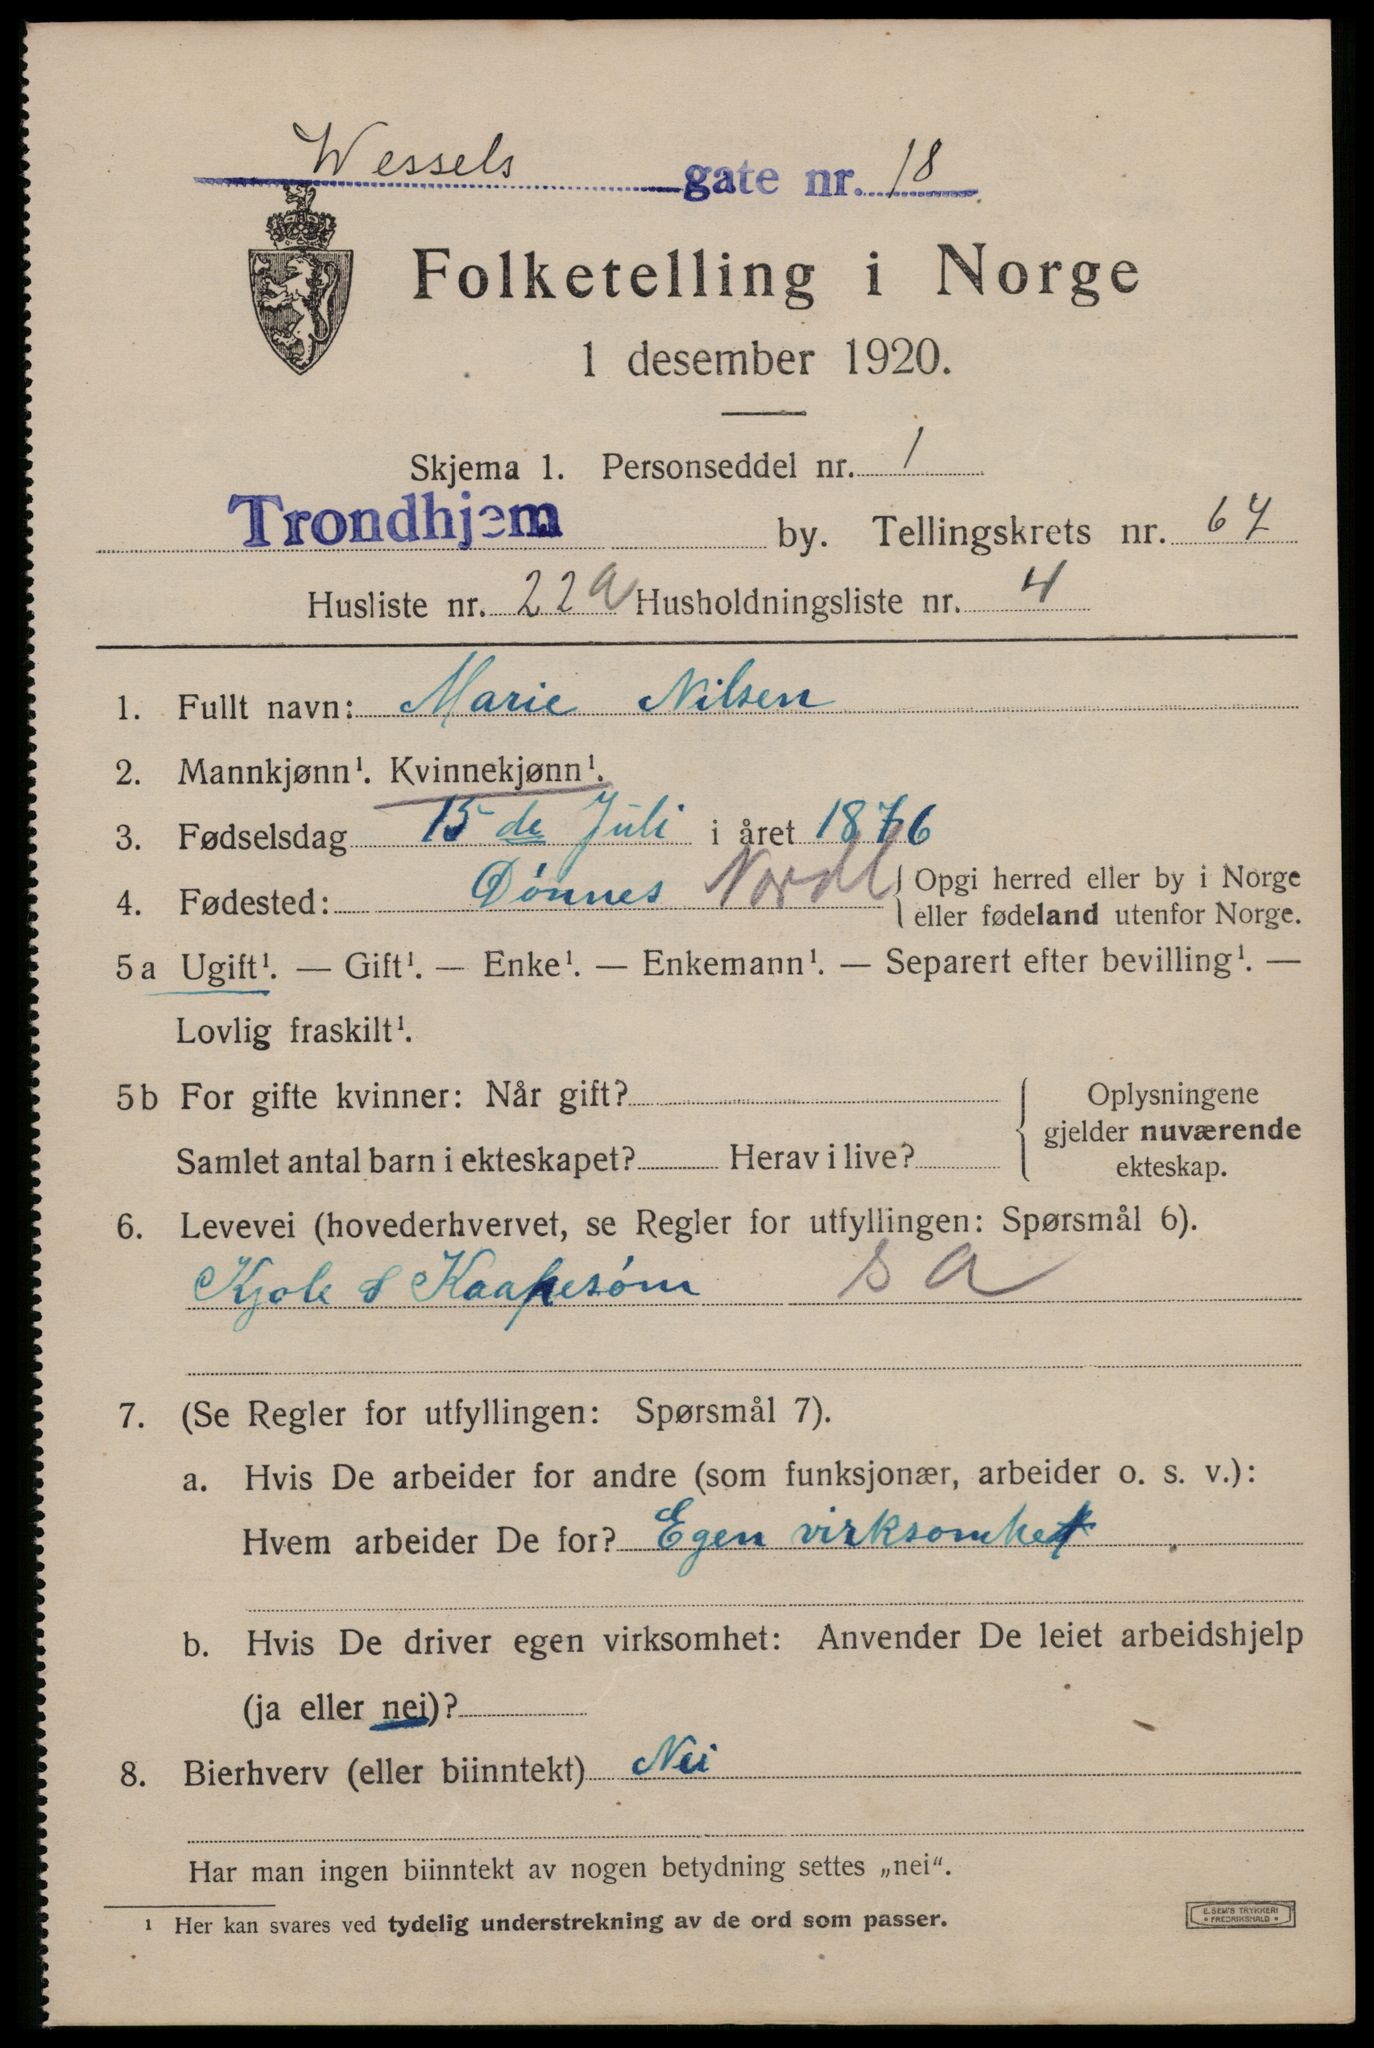 Wessels gate nr. 18
Folketelling i Norge
1 desember 1920.
Skjema 1. Personseddel nr. 1
Trondhjem by. Tellingskrets nr. 67
Husliste nr. 22a Husholdningsliste nr. 4
1. Fullt navn: Marie Nilsen
2. Mannkjønn¹. Kvinnekjønn¹.
3. Fødselsdag 15de Juli i året 1876
4. Fødested: Dønnes Nordl { Opgi herred eller by i Norge
eller fødeland utenfor Norge.
5a Ugift¹. — Gift¹. — Enke¹. — Enkemann¹. — Separert efter bevilling¹. —
Lovlig fraskilt¹.
5b For gifte kvinner: Når gift?
Samlet antal barn i ekteskapet? Herav i live?
Oplysningene
gjelder nuværende
ekteskap.
6. Levevei (hovederhvervet, se Regler for utfyllingen: Spørsmål 6).
Kjole & Kaapesøm s a
7. (Se Regler for utfyllingen: Spørsmål 7).
a. Hvis De arbeider for andre (som funksjonær, arbeider o. s. v.):
Hvem arbeider De for? Egen virksomhet
b. Hvis De driver egen virksomhet: Anvender De leiet arbeidshjelp
(ja eller nei)?
8. Bierhverv (eller biinntekt) Nei
Har man ingen biinntekt av nogen betydning settes „nei“.
¹ Her kan svares ved tydelig understrekning av de ord som passer.
E. SEM'S TRYKKERI
• FREDRIKSHALD •